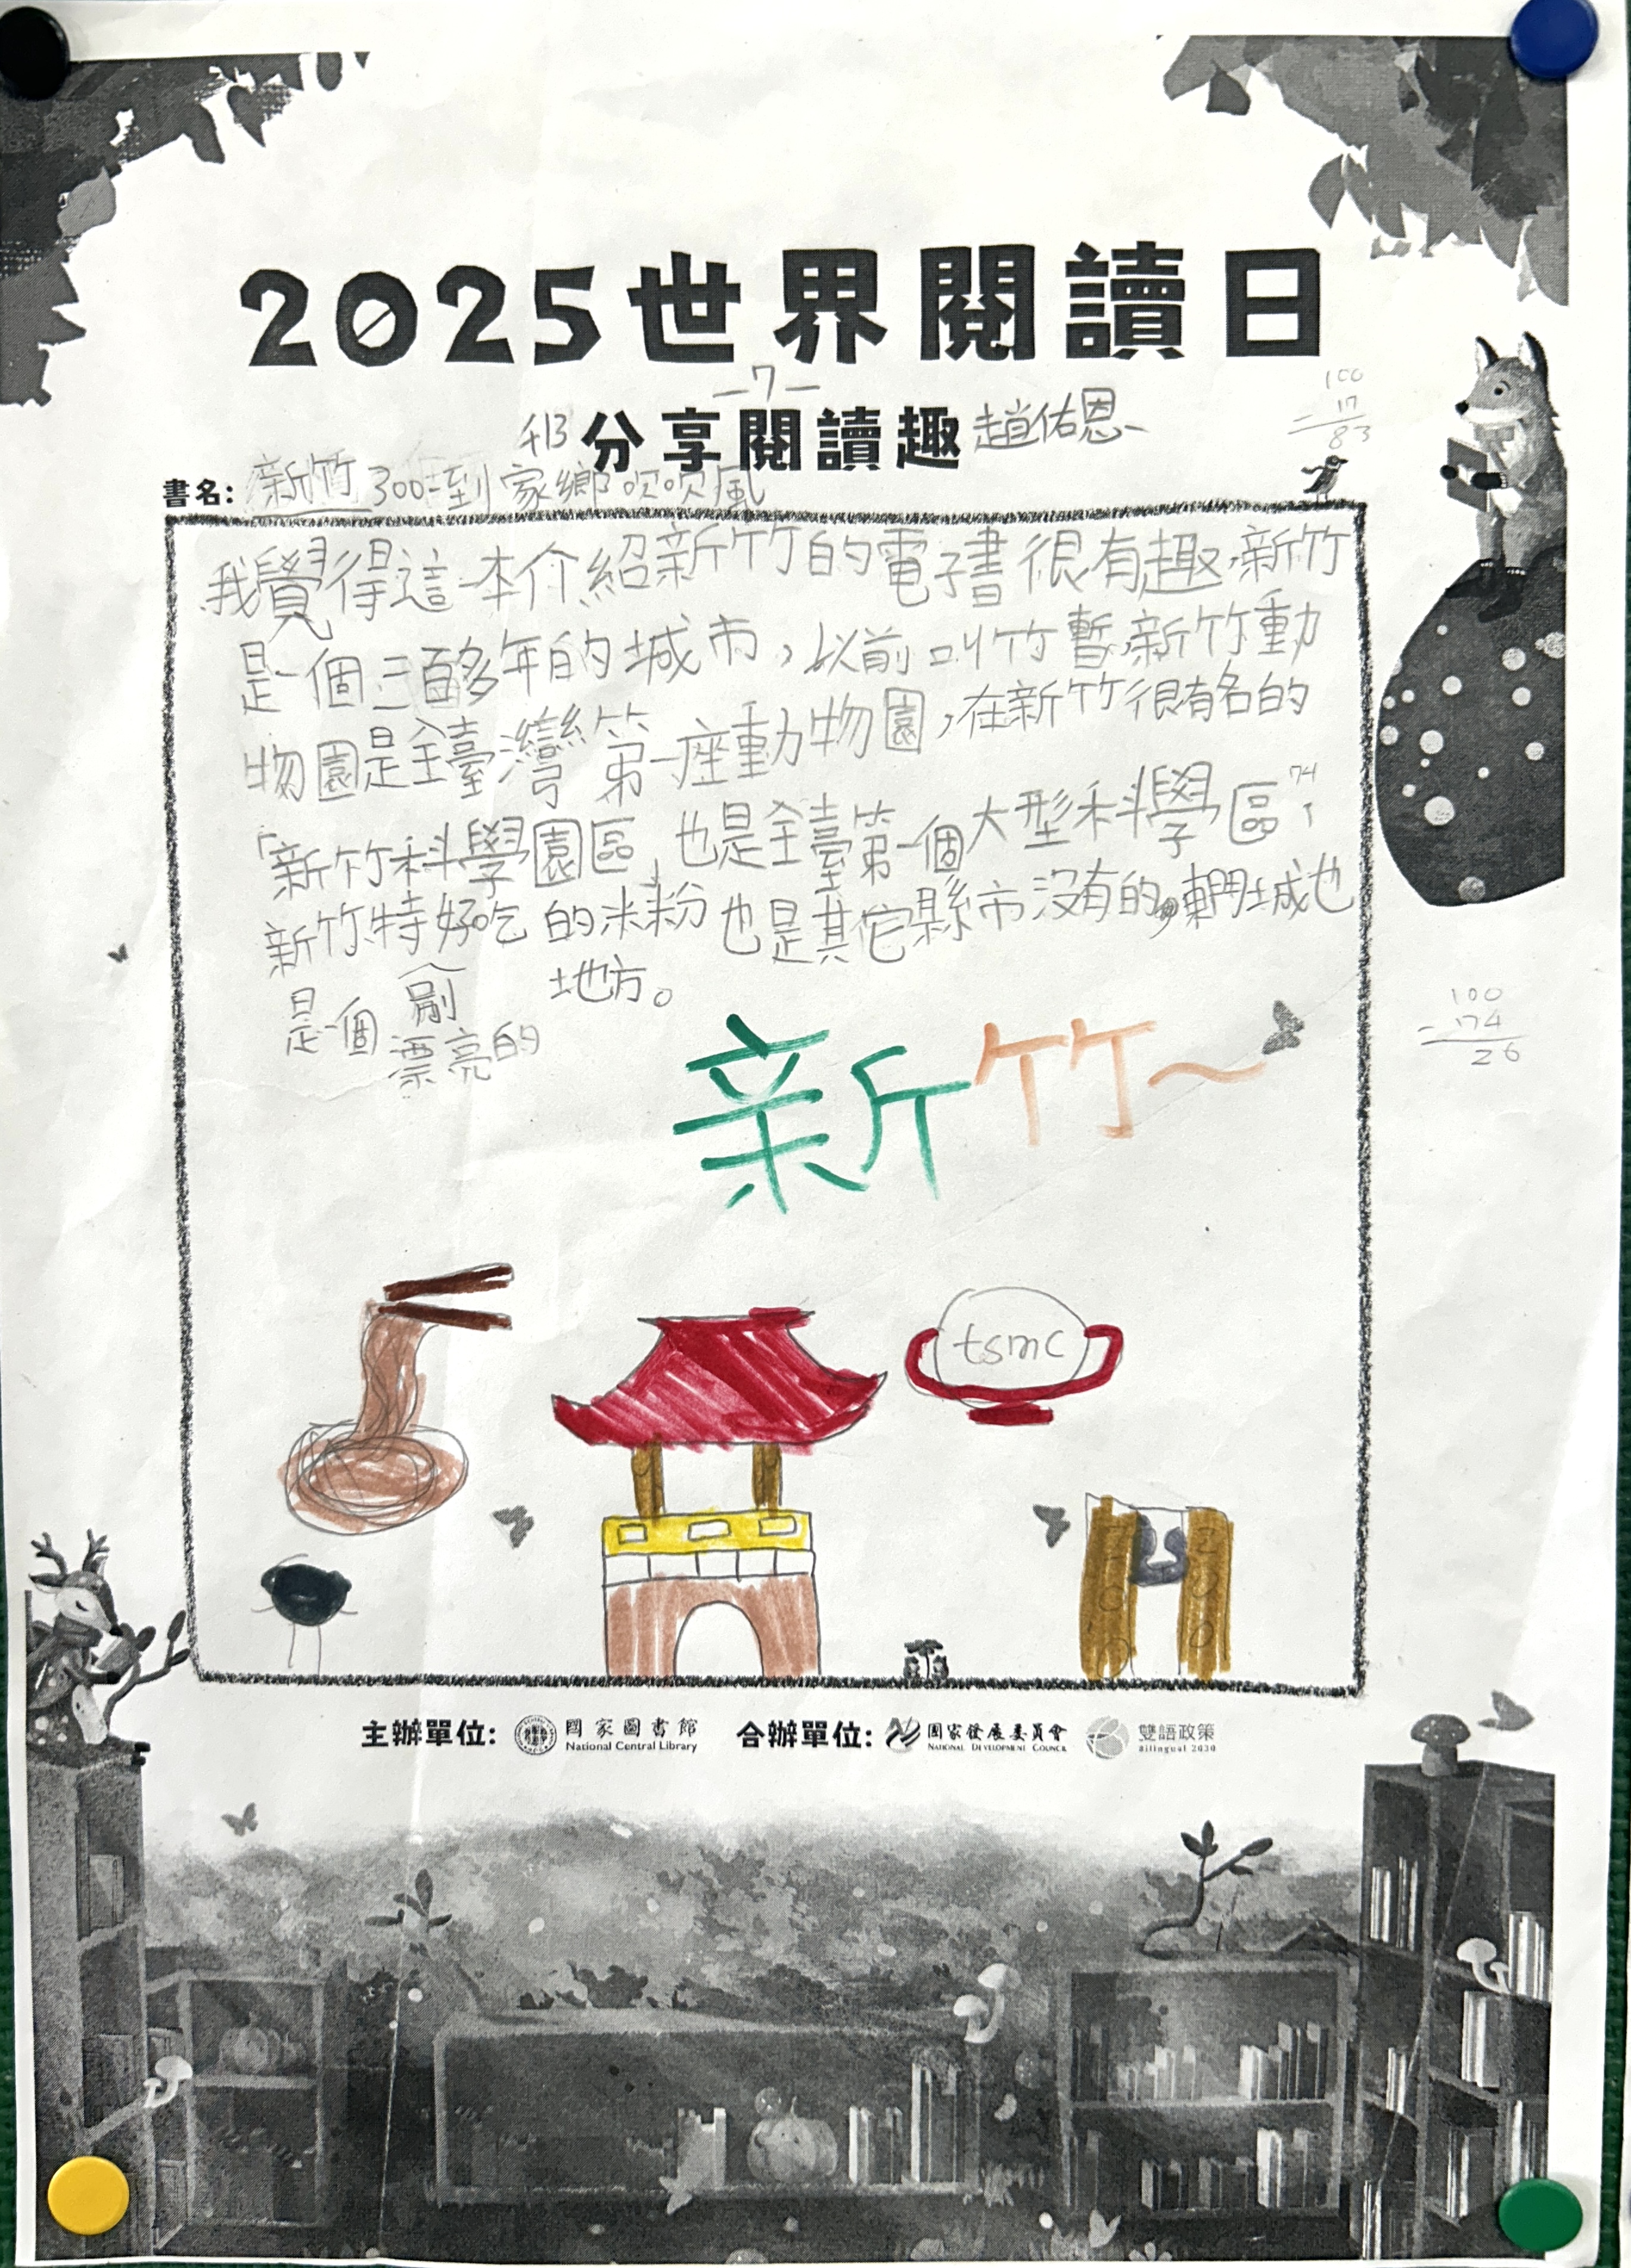 2025世界閱讀日
-7-
413 分享閱讀趣 趙佑恩
100
- 17
83
書名: 新竹300-到家鄉吹吹風
我覺得這一本介紹新竹的電子書很有趣,新竹
是一個三百多年的城市,以前叫竹暫,新竹動
物園是全臺灣第一座動物園,在新竹很有名的
「新竹科學園區」也是全臺第一個大型科學區,
74
新竹特好吃的米粉也是其它縣市沒有的,東門城也
是一個
漂亮的
地方。
100
- 174
26
新竹~
tsmc
主辦單位: 國家圖書館 National Central Library 合辦單位: 國家發展委員會 NATIONAL DEVELOPMENT COUNCIL 雙語政策 Bilingual 2030